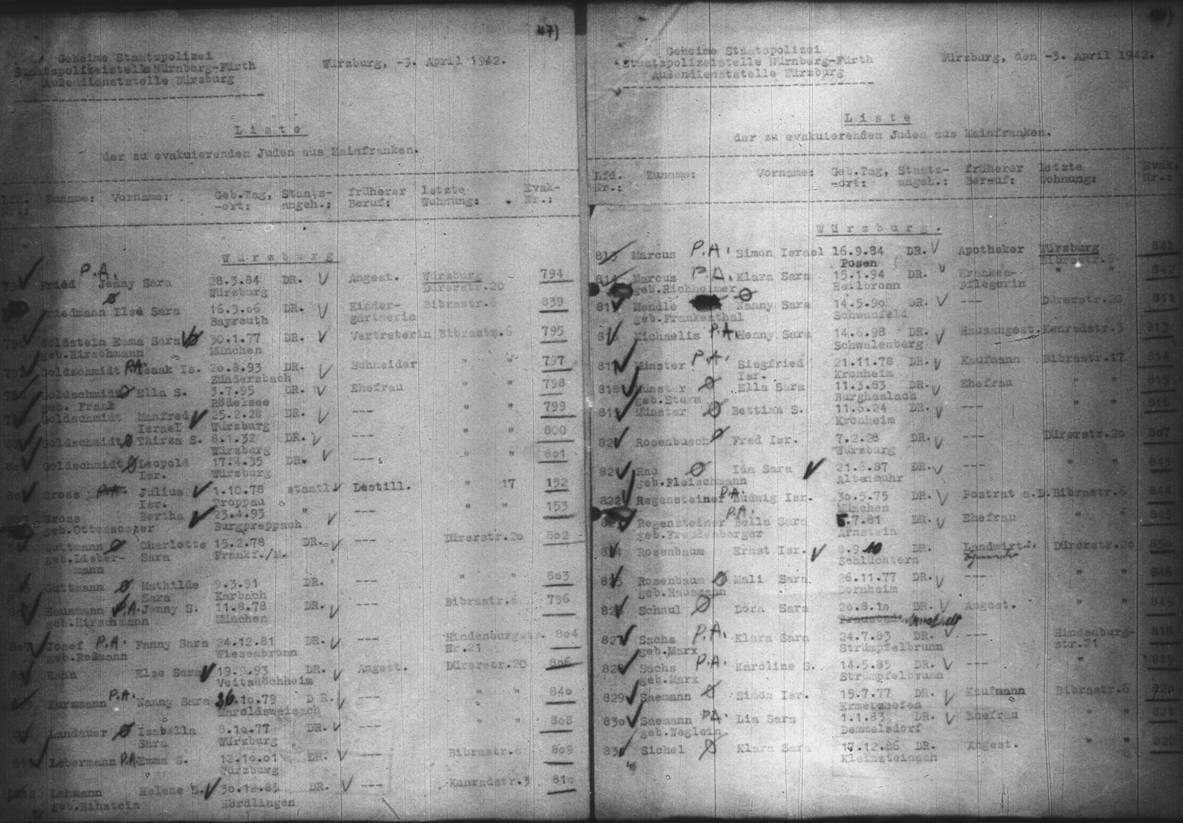 47)
Geheime Staatspolizei
Staatspolizeistelle Nürnberg-Fürth
Außendienststelle Würzburg
Würzburg, -3. April 1942.
Liste
der zu evakuierenden Juden aus Mainfranken.
Lfd. Nr.: Zuname: Vorname: Geb.Tag, -ort: Staats-angeh.: früherer Beruf: letzte Wohnung: Evak-Nr.:
Würzburg
P.A.
Fried Jenny Sara 28.3.84 DR. Angest. Würzburg 794
Würzburg Dürerstr.20
Friedmann Ilse Sara 16.5.06 DR. Kinder- Bibrastr.6 839
Bayreuth gärtnerin
Goldstein Emma Sara 30.1.77 DR. Vertreterin Bibrastr.6 795
geb.Hirschmann München
Goldschmidt P.A. Isaak Is. 20.8.93 DR. Schneider " " 797
Zündersbach
Goldschmidt Ella S. 3.7.95 DR. Ehefrau " " 798
geb. Frank Rödelsee
Goldschmidt Manfred 25.2.28 DR. --- " " 799
Israel Würzburg
Goldschmidt Thirza S. 8.1.32 DR. --- " " 800
Würzburg
Goldschmidt Leopold 17.4.35 DR. --- " " 801
Isr. Würzburg
Gross P.A. Julius 1.10.78 staatl. Destill. " 17 152
Isr. Troppau
Gross Bertha 23.4.93 " --- " " 153
geb.Ottensooser Burgpreppach
Guttmann Charlotte 15.2.78 DR. --- Dürerstr.20 802
geb.Lieber- Sara Frankf./M.
mann
Guttmann Mathilde 9.3.91 DR. --- " " 803
Sara Karbach
Hausmann P.A. Jenny S. 11.8.78 DR. --- Bibrastr.6 796
geb.Hirschmann München
Josef P.A. Fanny Sara 24.12.81 DR. --- Hindenburgstr. 804
geb.Roßmann Wiesenbronn Nr.21
Kahn Else Sara 19.9.93 DR. Angest. Dürerstr.20 806
Veitshöchheim
Kurzmann P.A. Nanny Sara .10.79 DR. --- " " 840
Maroldsweisach
Landauer Isabella 8.10.77 DR. --- " " 808
Sara Würzburg
Lebermann P.A. Emma S. 12.10.01 DR. --- Bibrastr.6 809
Würzburg
Lehmann Helene S. 30.12.85 DR. --- Konradstr.3 810
Nördlingen
Geheime Staatspolizei
Staatspolizeistelle Nürnberg-Fürth
Außendienststelle Würzburg
Würzburg, den -3. April 1942.
Liste
der zu evakuierenden Juden aus Mainfranken.
Lfd. Nr.: Zuname: Vorname: Geb.Tag, -ort: Staats-angeh.: früherer Beruf: letzte Wohnung: Evak. Nr.:
Würzburg.
813 Marcus P.A. Simon Israel 16.9.84 DR. Apotheker Würzburg 841
Posen Bibrastr.6
814 Marcus P.A. Klara Sara 15.1.94 DR. Kranken- " " 842
geb.Richheimer Heilbronn pflegerin
Mendle Nanny Sara 14.5.90 DR. --- Dürerstr.20 811
geb.Frankenthal Schwanfeld
Michaelis P.A. Henny Sara 14.6.98 DR. Hausangest. Konradstr.3 913
Schwalenberg
Münster P.A. Siegfried 21.11.78 DR. Kaufmann Bibrastr.17 814
Isr. Kronheim
Münster Ella Sara 11.3.83 DR. Ehefrau " "
geb.Sturm Burghaslach
Münster Bettina S. 11.6.24 DR. --- " "
Kronheim
Rosenbusch Fred Isr. 7.2.28 DR. --- Dürerstr.20 807
Würzburg
Rau Ida Sara 21.8.87 DR. --- " "
geb.Fleischmann Altenmuhr
822 Regensteiner P.A. Ludwig Isr. 30.5.75 DR. Postrat a.D. Bibrastr.6 844
München
Regensteiner P.A. Bella Sara .7.81 DR. Ehefrau " "
geb.Freudenberger Arnstein
Rosenbaum Ernst Isr. 8.9.10 DR. Landwirt. Dürerstr.20
Schlüchtern
Rosenbaum Mali Sara 26.11.77 DR. --- " " 846
geb.Hausmann Dornheim
Schaul Dora Sara 20.8.10 DR. Angest. " "
Sachs P.A. Klara Sara 24.7.83 DR. --- Hindenburg- 818
geb.Marx Strümpfelbrunn str.21
Sachs P.A. Karoline S. 14.5.85 DR. --- " " 819
geb.Marx Strümpfelbrunn
829 Saemann Simon Isr. 15.7.77 DR. Kaufmann Bibrastr.6 820
Ermetzhofen
830 Saemann P.A. Lia Sara 1.1.83 DR. Ehefrau " " 821
geb.Weglein Demmelsdorf
831 Sichel Klara Sara 17.12.86 DR. Angest. " "
Kleinsteinach